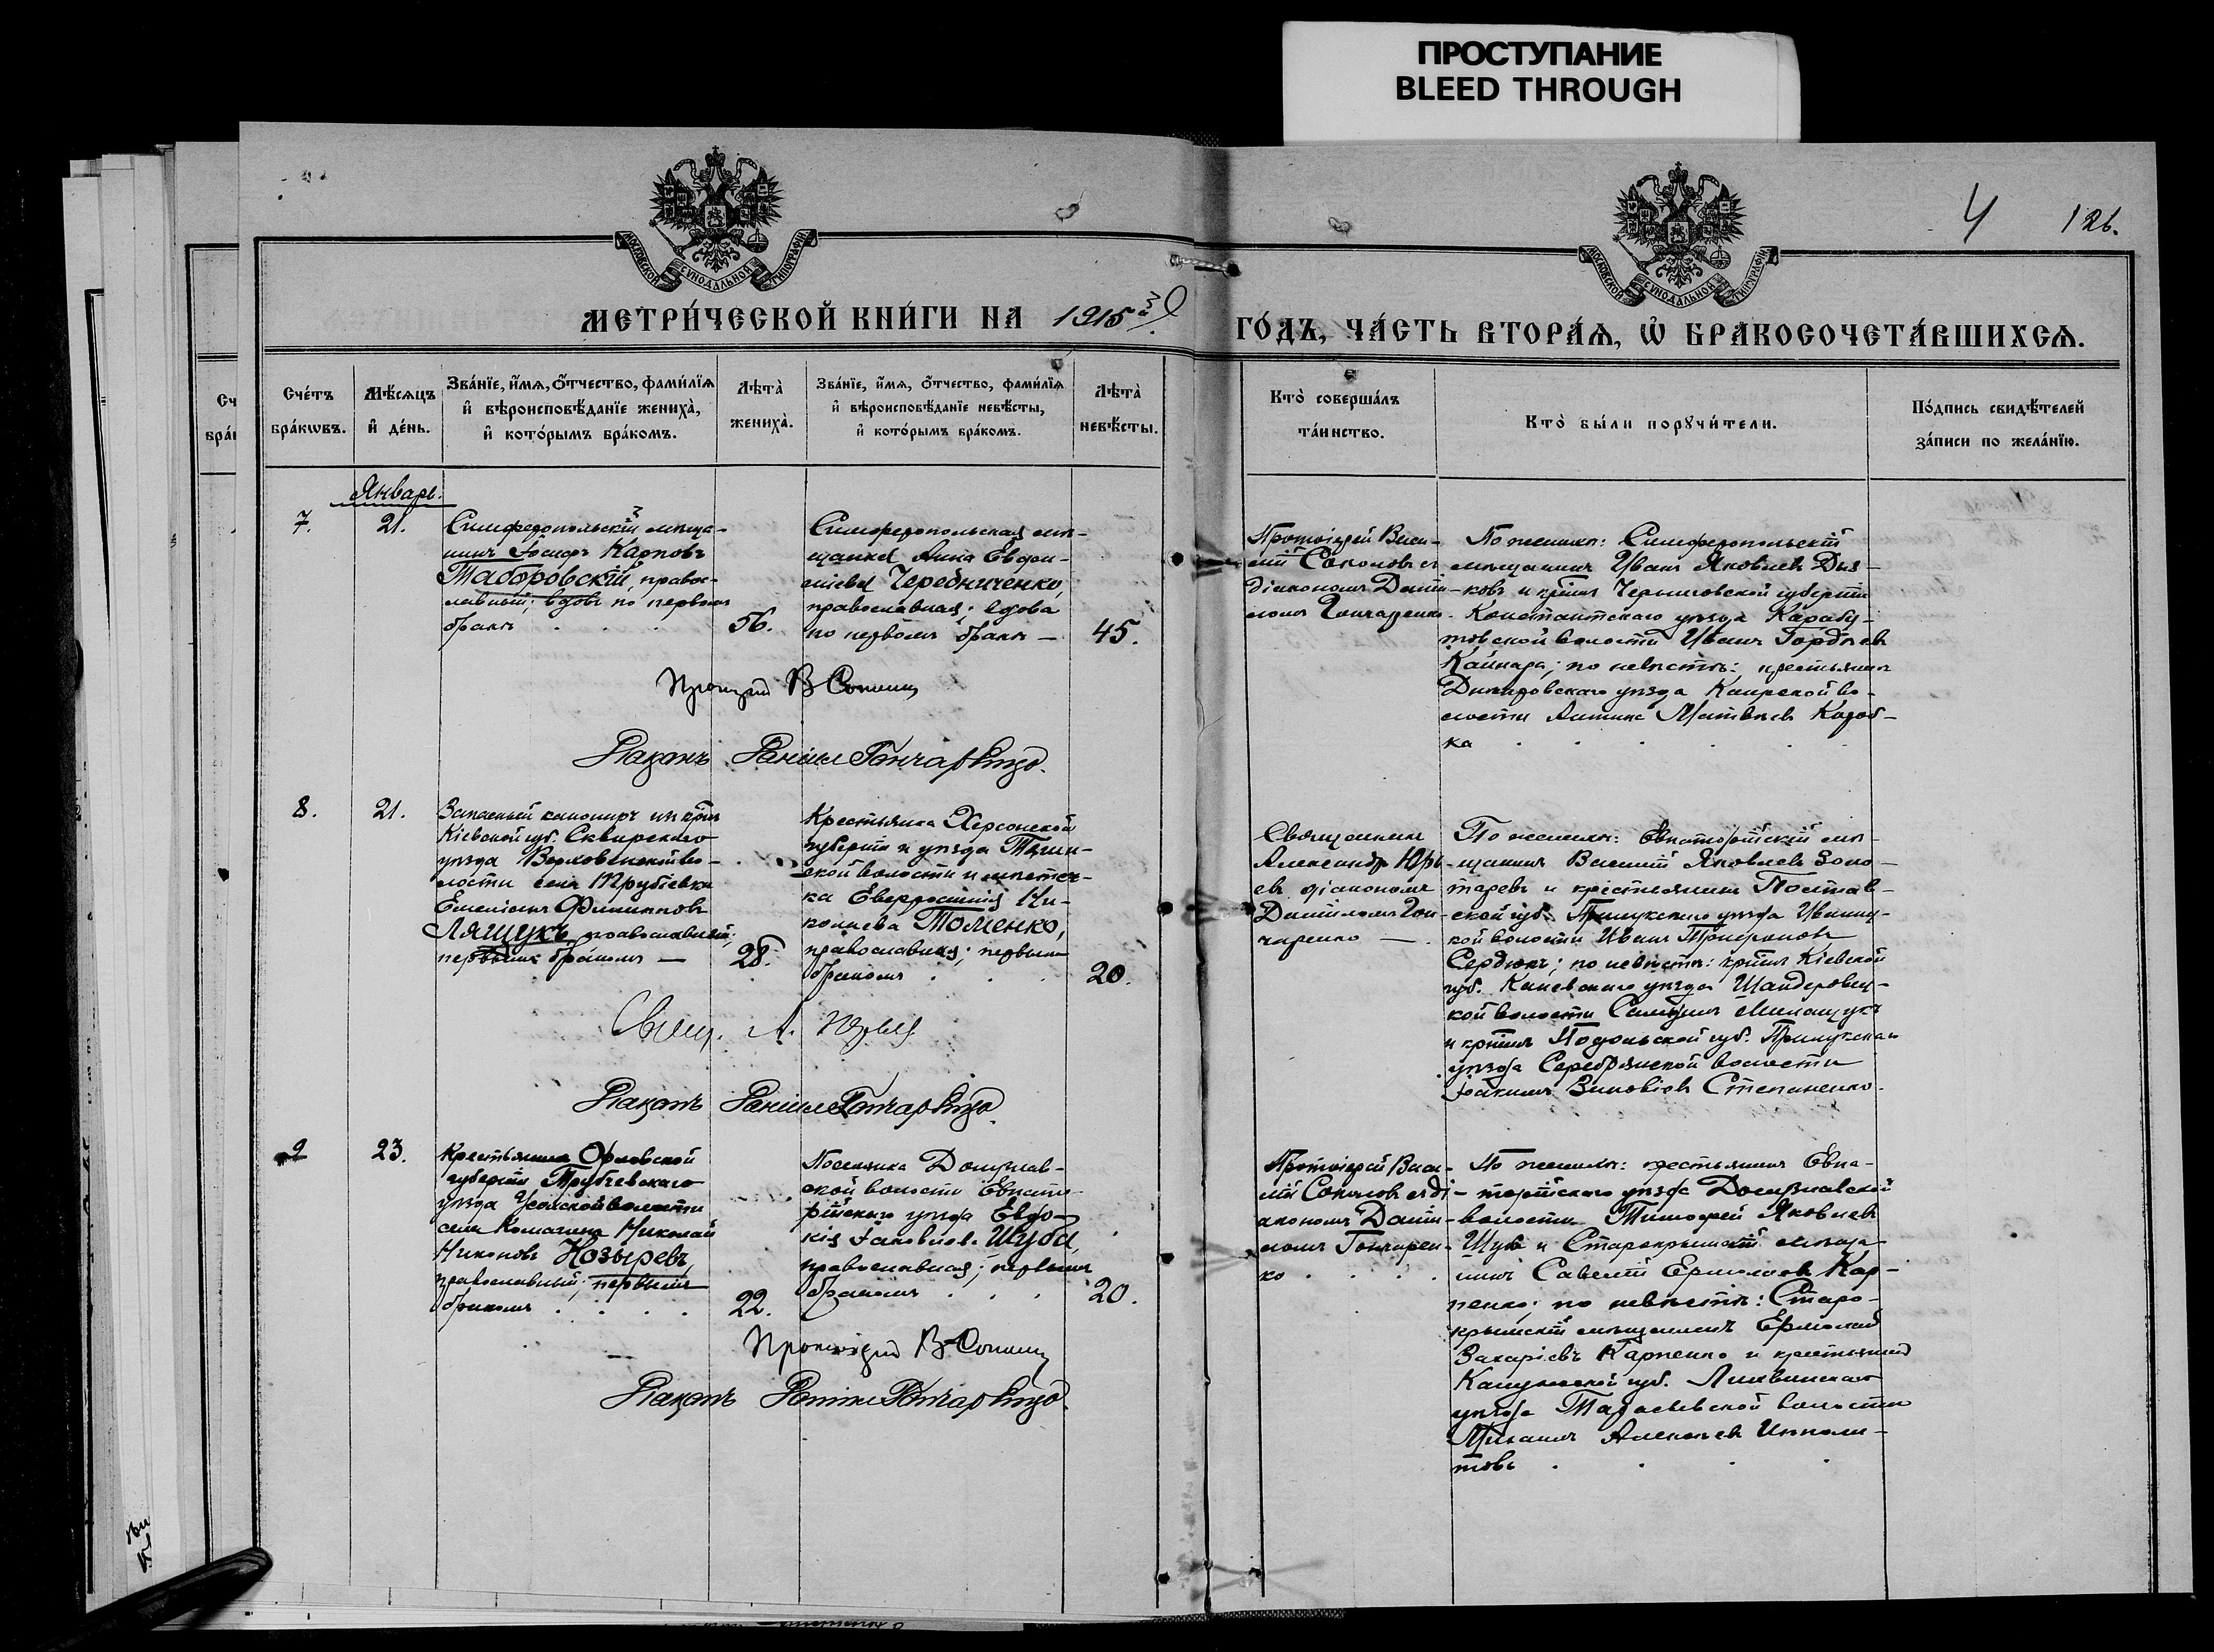 ПРОСТУПАНИЕ
BLEED THROUGH
4 126.
МОСКОВСКОЙ СѴНОДАЛЬНОЙ ТИПОГРАФІИ
МОСКОВСКОЙ СѴНОДАЛЬНОЙ ТИПОГРАФІИ
МЕТРИ́ЧЕСКОЙ КНИ́ГИ НА 1915й
ГО́ДЪ, ЧА́СТЬ ВТОРА́Я, Ѽ БРАКОСОЧЕТА́ВШИХСЯ.
Сче́тъ
бра́кѡвъ.
Мѣ́сяцъ
и҆ де́нь.
Зва́нїе, и҆́мя, ѻ҆́тчество, фами́лїя
и҆ вѣроисповѣ́данїе жениха̀,
и҆ кото́рымъ бра́комъ.
Лѣта̀
жениха̀.
Зва́нїе, и҆́мя, ѻ҆́тчество, фами́лїя
и҆ вѣроисповѣ́данїе невѣ́сты,
и҆ кото́рымъ бра́комъ.
Лѣта̀
невѣ́сты.
Кто̀ соверша́лъ
та́инство.
Кто̀ бы́ли порꙋчи́тели.
По́дпись свидѣ́телей
за́писи по жела́нїю.
Январь.
7.
21.
Симферопольскій мѣща-
нинъ Іосифъ Карповъ
Таборовскій, правос-
лавный; вдовъ по первомъ
бракѣ
56.
Симферопольская мѣ-
щанка Анна Евдок-
имова Чередниченко,
православная; вдова
по первомъ бракѣ —
45.
Протоіерей Васи-
лій Соколовъ съ
діакономъ Даніи-
ломъ Гончаренко.
По женихѣ: Симферопольскій
мѣщанинъ Иванъ Яковлевъ Дья-
ковъ и крѣнъ Черниговской губерніи
Конотопскаго уѣзда Карабу-
товской волости Иванъ Гордѣевъ
Кайнара; по невѣстѣ: крестьянинъ
Днѣпровскаго уѣзда Каирской во-
лости Антипа Матвѣевъ Короб-
ка
Протоіерей В Соколовъ
Діаконъ Даніилъ Гончаренко.
8.
21.
Запасный канониръ изъ крѣнъ
Кіевской губ. Сквирскаго
уѣзда Верховенской во-
лости села Трубіевки
Емеліанъ Филипповъ
Лящукъ, православный;
первымъ бракомъ —
28.
Крестьянка Херсонской
губерніи и уѣзда Тягин-
ской волости и мѣстеч-
ка Евфросинія Ни-
колаева Томенко,
православная; первымъ
бракомъ
20.
Священникъ
Александръ Юрь-
евъ діакономъ
Даніиломъ Гон-
чаренко —
По женихѣ: Евпаторійскій мѣ-
щанинъ Василій Яковлевъ Золо-
таревъ и крестьянинъ Полтав-
ской губ. Прилукскаго уѣзда Иваниц-
кой волости Иванъ Трифоновъ
Сердюкъ; по невѣстѣ: крѣнъ Кіевской
губ. Каневскаго уѣзда Шандеровец-
кой волости Самуилъ
и крѣнъ Подольской губ.
уѣзда волости
Іоакимъ Зиновіевъ Степаненко.
Свящ. А. Юрьев
Діаконъ Даніилъ Гончаренко
9
23.
Крестьянинъ Орловской
губерніи Трубчевскаго
уѣзда Усохской волости
села Комягина Николай
Никоновъ Козыревъ,
православный; первымъ
бракомъ
22.
Поселянка Донузлав-
ской волости Евпато-
рійскаго уѣзда Евдо-
кія Іаковлева Шуба,
православная; первымъ
бракомъ
20.
Протоіерей Васи-
лій Соколовъ съ ді-
акономъ Даніи-
ломъ Гончарен-
ко
По женихѣ: крестьянинъ Евпа-
торійскаго уѣзда Донузлавской
волости Тимофей Яковлевъ
Шуба и Старокрымскій мѣща-
нинъ Савелій Ермолаевъ Кар-
пенко; по невѣстѣ: Старо-
крымскій мѣщанинъ Ермолай
Захаріевъ Карпенко и крестьянинъ
Калужской губ. Лихвинскаго
уѣзда волости
Михаилъ Алексѣевъ Ипполи-
товъ
Протоіерей В Соколовъ
Діаконъ Даніилъ Гончаренко.